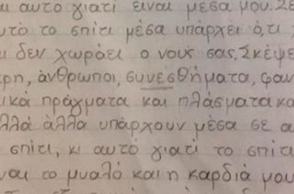 ι αυτό γιατί είναι μέσα μου. Σε
υτό το σπίτι μέσα υπάρχει ό,τι
ι δεν χωράει ο νους σας. Σκέψε
ρη, άνθρωποι, συνεσθήματα, φαν
ικά πράγματα και πλάσματα κα
λλά άλλα υπάρχουν μέσα σε α
σπίτι, κι αυτό γιατί το σπίτι
ναι το μυαλό και η καρδιά μου